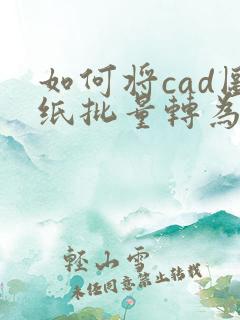 如何将cad图
纸批量轉為
軽小雪
未经同意禁止转载